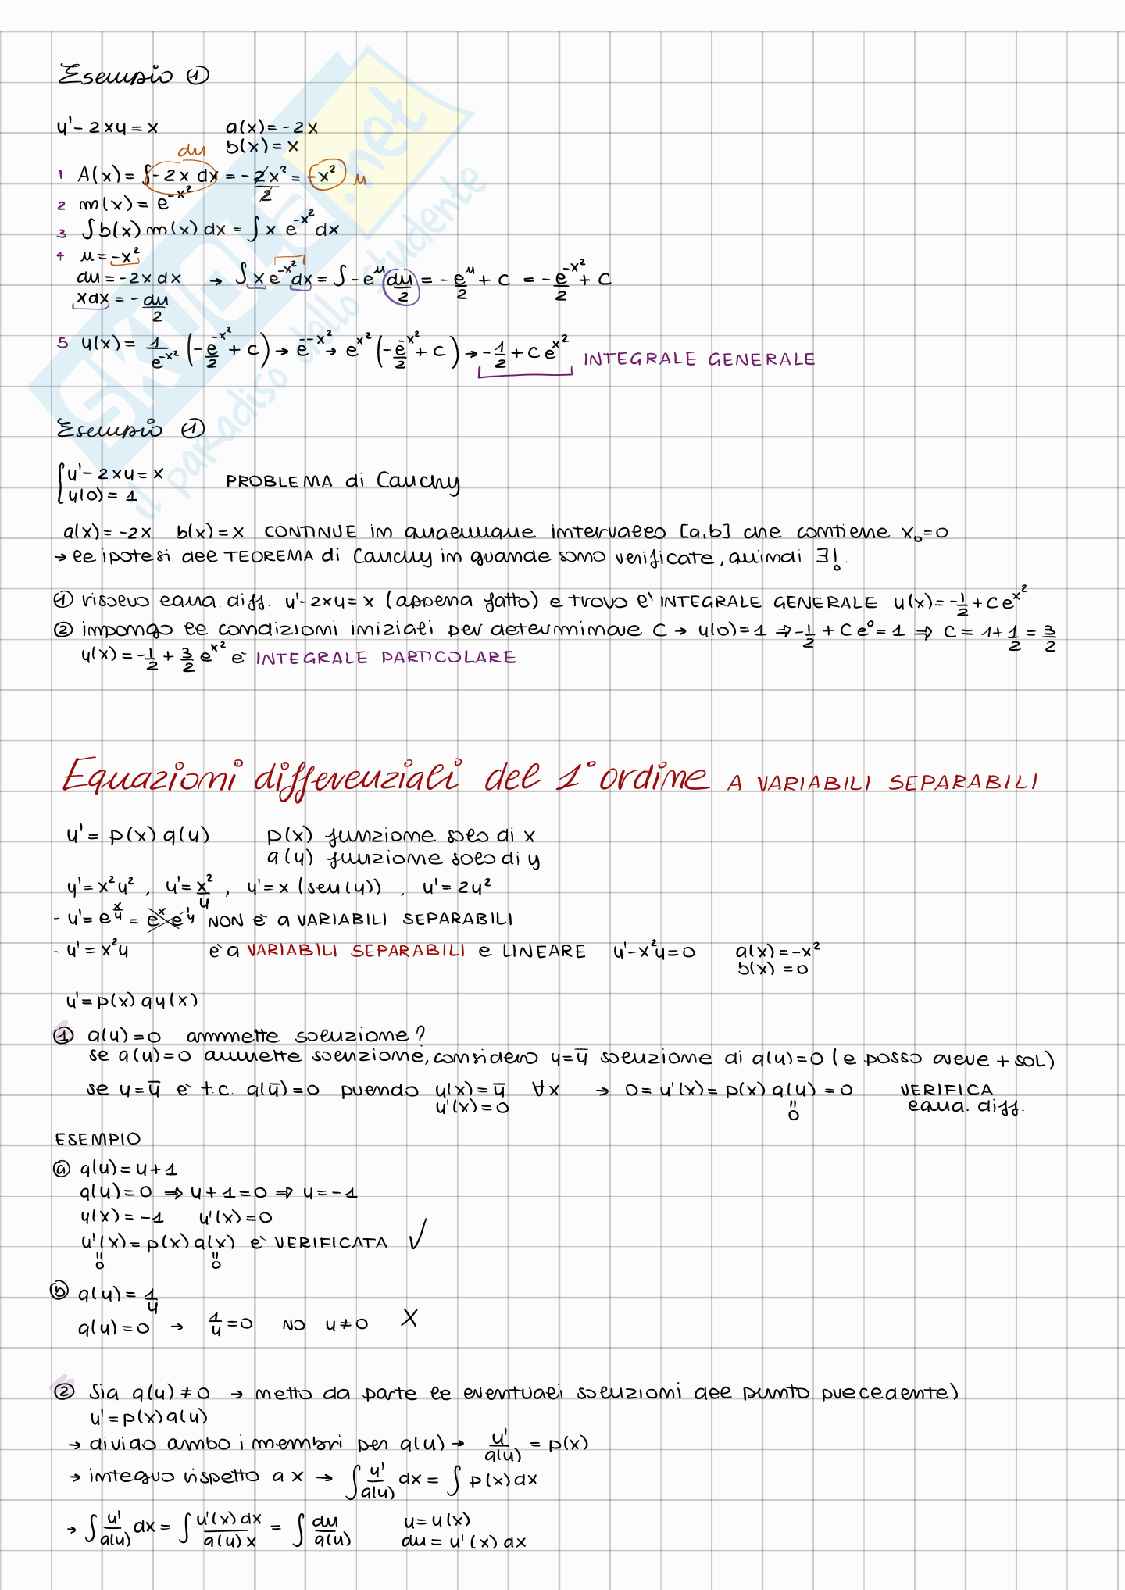 Esempio ①
y' - 2xy = x a(x) = -2x
b(x) = x
du
1 A(x) = ∫-2x dx = -2x²/2 = -x² u
2 m(x) = e^(-x²)
3 ∫b(x) m(x) dx = ∫x e^(-x²) dx
4 u = -x²
du = -2x dx → ∫x e^(-x²) dx = ∫-e^u du/2 = -e^u/2 + c = -e^(-x²)/2 + c
xdx = -du/2
5 y(x) = 1/e^(-x²) (-e^(-x²)/2 + c) → e^(--x²) → e^(x²) (-e^(-x²)/2 + c) → -1/2 + c e^(x²) INTEGRALE GENERALE
Esempio ①
{y' - 2xy = x
{y(0) = 1
PROBLEMA di Cauchy
a(x) = -2x b(x) = x CONTINUE in qualunque intervallo [a,b] che contiene x₀=0
→ le ipotesi del TEOREMA di Cauchy in grande sono verificate, quindi ∃!
① risolvo equa. diff. y'-2xy=x (appena fatto) e trovo l'INTEGRALE GENERALE y(x) = -1/2 + c e^(x²)
② impongo le condizioni iniziali per determinare c → y(0)=1 ⇒ -1/2 + c e⁰ = 1 ⇒ c = 1+1/2 = 3/2
y(x) = -1/2 + 3/2 e^(x²) è INTEGRALE PARTICOLARE
Equazioni differenziali del 1° ordine A VARIABILI SEPARABILI
y' = p(x) q(y) p(x) funzione solo di x
q(y) funzione solo di y
y' = x²y² , y' = x²/y , y' = x (sen(y)) , y' = 2y²
- y' = e^(x/y) = e^x e^(1/y) NON è a VARIABILI SEPARABILI
- y' = x²y è a VARIABILI SEPARABILI e LINEARE y'-x²y=0 a(x) = -x²
b(x) = 0
y' = p(x) qy(x)
① q(y)=0 ammette soluzione?
se q(y)=0 ammette soluzione, considero y=ȳ soluzione di q(y)=0 (e posso avere + sol)
se y=ȳ è t.c. q(ȳ)=0 prendo y(x)=ȳ ∀x → 0 = y'(x) = p(x) q(y) = 0 VERIFICA
y'(x)=0 " 0 equa. diff.
ESEMPIO
ⓐ q(y) = y+1
q(y) = 0 ⇒ y+1=0 ⇒ y=-1
y(x) = -1 y'(x) = 0
y'(x) = p(x) q(x) è VERIFICATA ✓
" "
0 0
ⓑ q(y) = 1/y
q(y) = 0 → 1/y = 0 NO y≠0 X
② Sia q(y) ≠ 0 → metto da parte le eventuali soluzioni del punto precedente)
y' = p(x) q(y)
→ divido ambo i membri per q(y) → y'/q(y) = p(x)
→ integro rispetto a x → ∫ y'/q(y) dx = ∫ p(x) dx
→ ∫ y'/q(y) dx = ∫ y'(x) dx/q(y) x = ∫ dy/q(y) y = y(x)
dy = y'(x) dx
SKUOLA.net
il paradiso dello studente